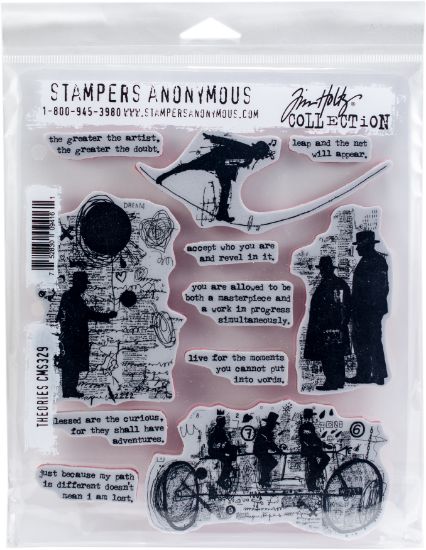 STAMPERS ANONYMOUS
1-800-945-3980 WWW.STAMPERSANONYMOUS.COM
Tim Holtz
COLLECTION
the greater the artist,
the greater the doubt.
leap and the net
will appear.
DREAM
accept who you are
and revel in it.
you are allowed to be
both a masterpiece and
a work in progress
simultaneously.
live for the moments
you cannot put
into words.
THEORIES CMS329
lessed are the curious,
for they shall have
adventures.
7
6
just because my path
is different doesn't
mean i am lost.